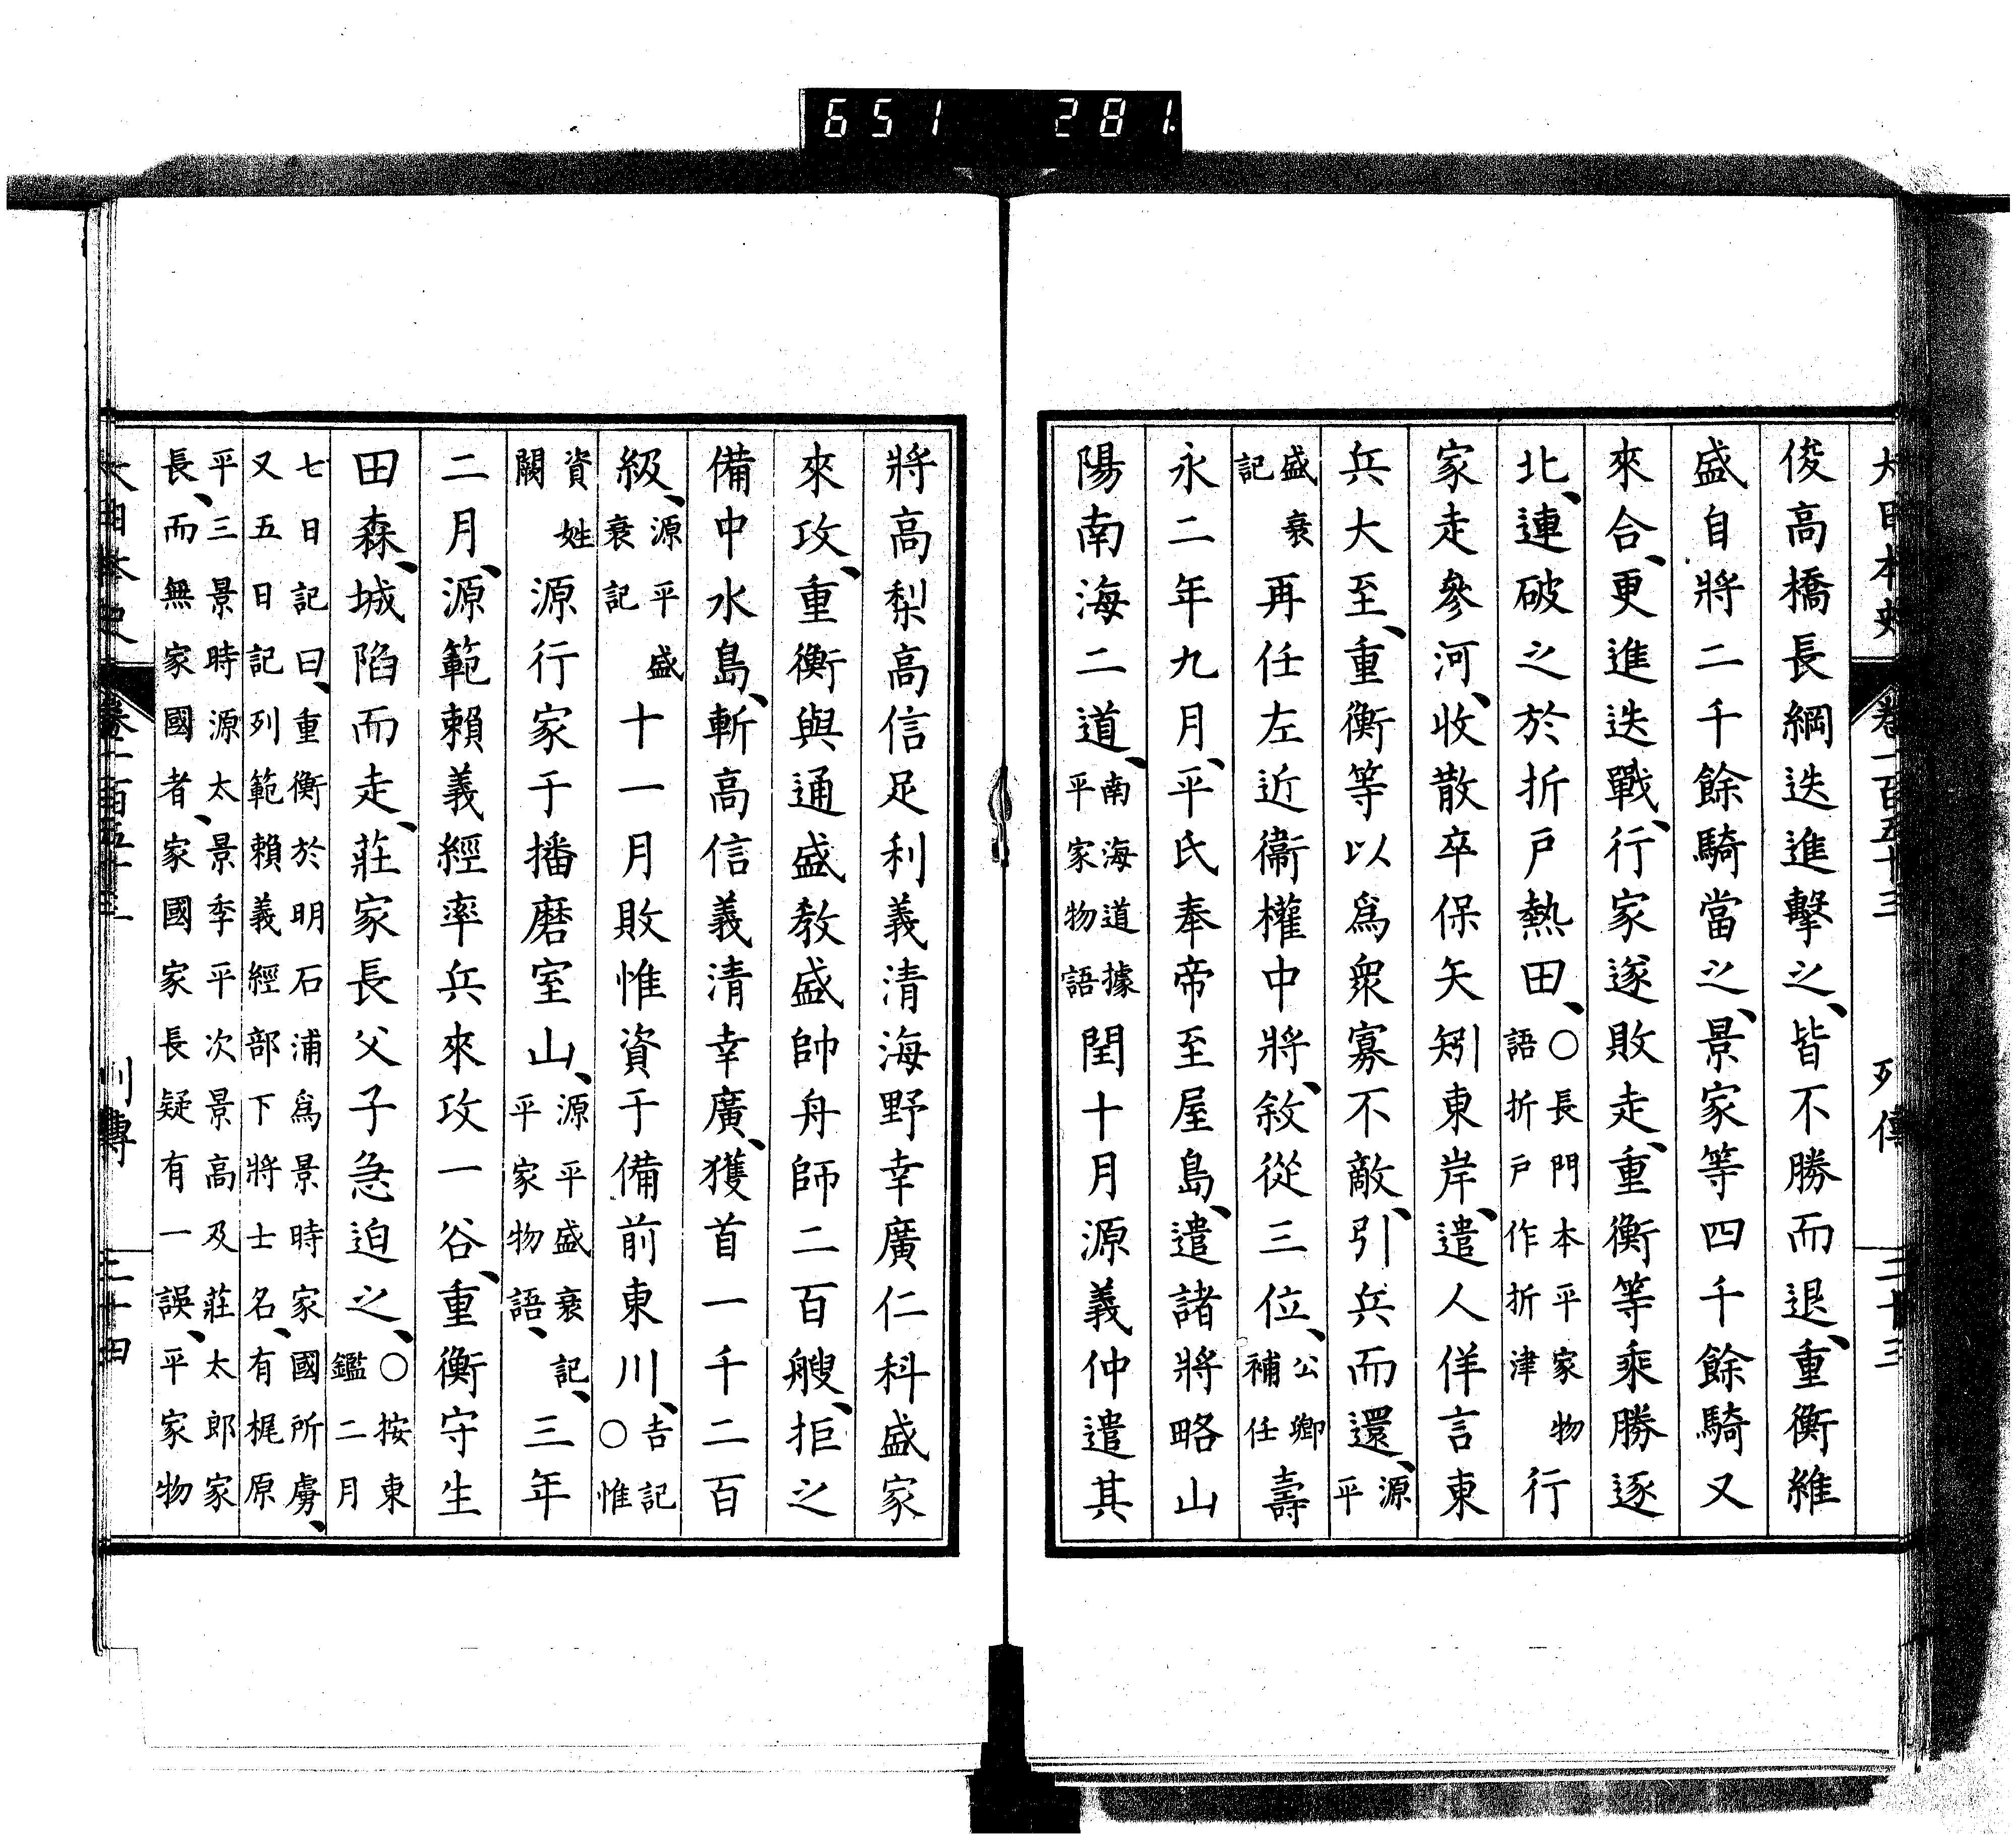 651 281
大日本史 卷一百五十三 列傳 二十三
俊高橋長綱迭進擊之、皆不勝而退、重衡維
盛自將二千餘騎當之、景家等四千餘騎又
來合、更進迭戰、行家遂敗走、重衡等乘勝逐
北、連破之於折戶熱田、○長門本平家物語折戶作折津行
家走參河、收散卒保矢矧東岸、遣人佯言東
兵大至、重衡等以爲衆寡不敵、引兵而還、源平
盛衰記再任左近衞權中將、敘從三位、公卿補任壽
永二年九月、平氏奉帝至屋島、遣諸將略山
陽南海二道、南海道據平家物語閏十月源義仲遣其
將高梨高信足利義清海野幸廣仁科盛家
來攻、重衡與通盛教盛帥舟師二百艘、拒之
備中水島、斬高信義清幸廣、獲首一千二百
級、源平盛衰記十一月敗惟資于備前東川、吉記○惟
資姓闕源行家于播磨室山、源平盛衰記、平家物語、三年
二月、源範賴義經率兵來攻一谷、重衡守生
田森、城陷而走、莊家長父子急迫之、○按東鑑二月
七日記曰、重衡於明石浦爲景時家國所虜、
又五日記列範賴義經部下將士名、有梶原
平三景時源太景季平次景高及莊太郎家
長、而無家國者、家國家長疑有一誤、平家物
大日本史 卷一百五十三 列傳 二十四